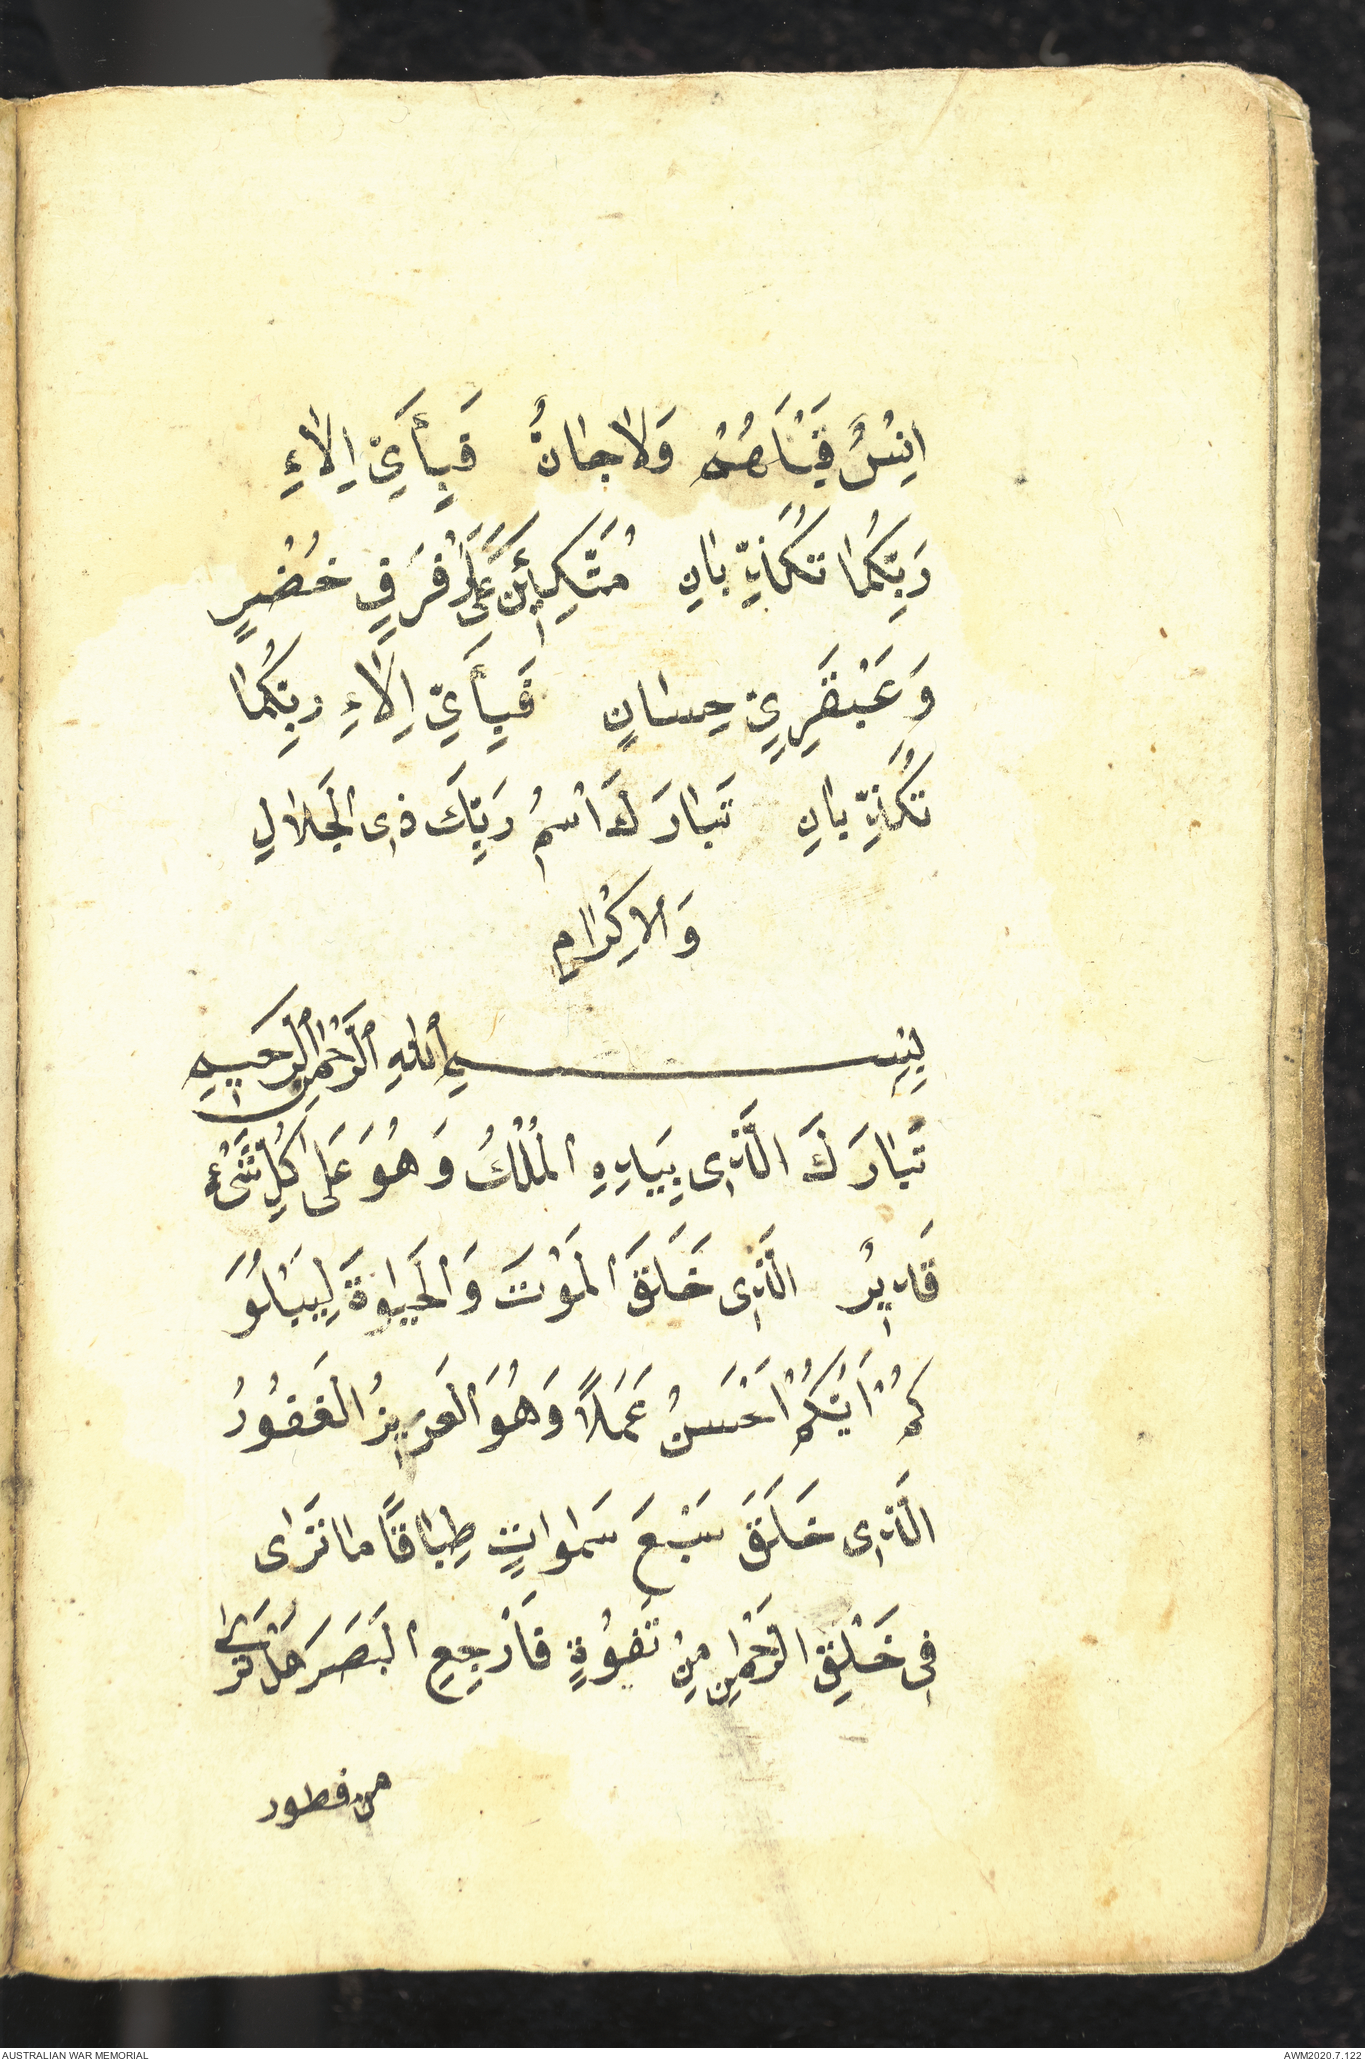 اِنْسٌ قَبْلَهُمْ وَلَا جَانٌّ فَبِأَيِّ اِلَاءِ
رَبِّكُمَا تُكَذِّبَانِ مُتَّكِئِينَ عَلَى رَفْرَفٍ خُضْرٍ
وَعَبْقَرِيٍّ حِسَانٍ فَبِأَيِّ اِلَاءِ رَبِّكُمَا
تُكَذِّبَانِ تَبَارَكَ اسْمُ رَبِّكَ ذِى الْجَلَالِ
وَالْاِكْرَامِ
بِسْمِ اللّٰهِ الرَّحْمٰنِ الرَّحِيمِ
تَبَارَكَ الَّذِى بِيَدِهِ الْمُلْكُ وَهُوَ عَلَى كُلِّ شَىْءٍ
قَدِيرٌ الَّذِى خَلَقَ الْمَوْتَ وَالْحَيٰوةَ لِيَبْلُوَ
كُمْ اَيُّكُمْ اَحْسَنُ عَمَلًا وَهُوَ الْعَزِيزُ الْغَفُورُ
الَّذِى خَلَقَ سَبْعَ سَمٰوَاتٍ طِبَاقًا مَا تَرَاى
فِى خَلْقِ الرَّحْمٰنِ مِنْ تَفٰوُةٍ فَارْجِعِ الْبَصَرَ هَلْ تَرَى
من فطور
AUSTRALIAN WAR MEMORIAL
AWM2020.7.122